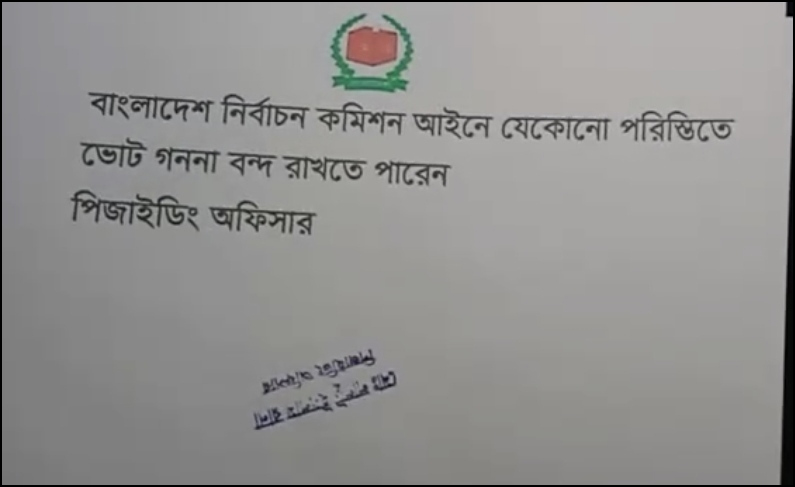 বাংলাদেশ নির্বাচন কমিশন আইনে যেকোনো পরিস্তিতে
ভোট গননা বন্দ রাখতে পারেন
পিজাইডিং অফিসার